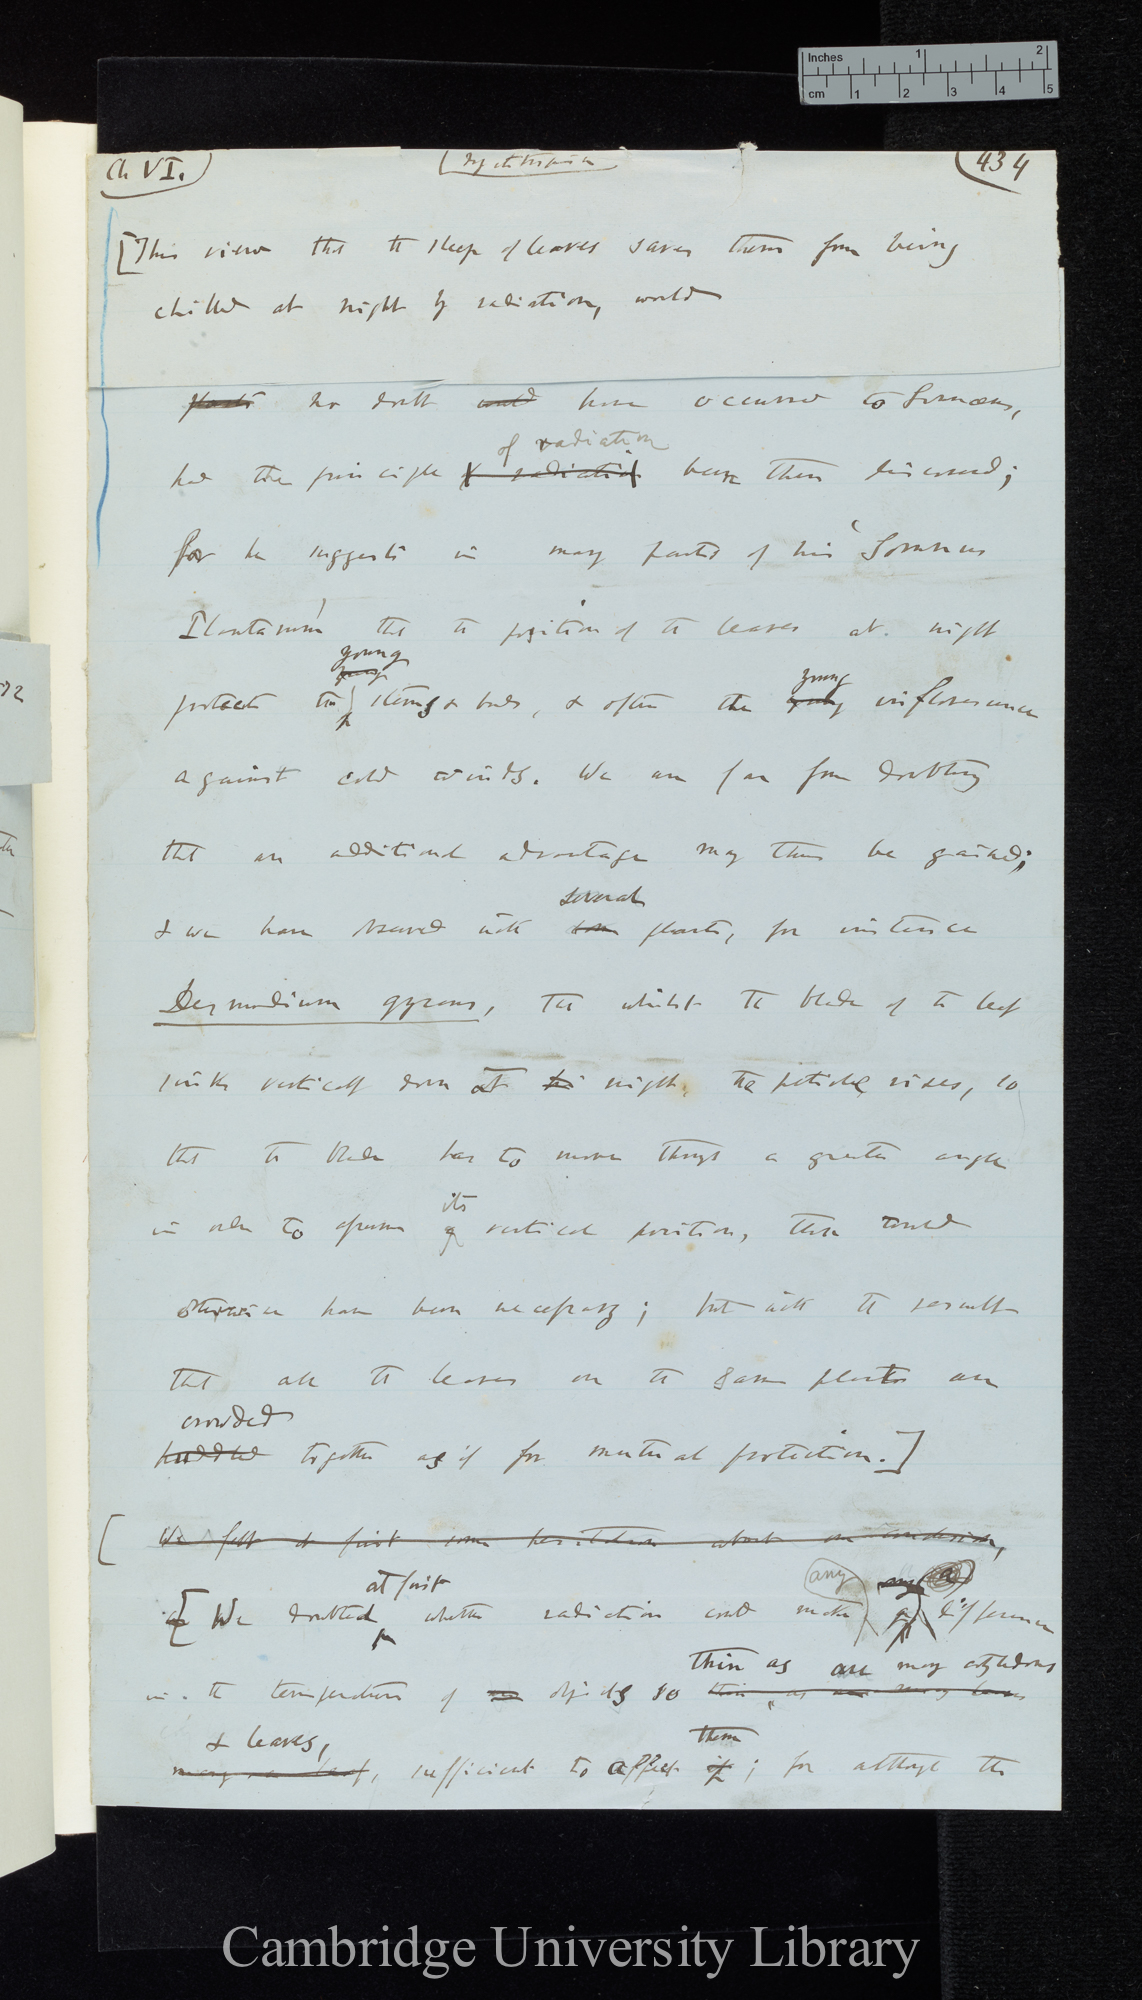 Inches 1 2
cm 1 2 3 4 5
Ch VI.
434
[This view that the sleep of leaves saves them from being
chilled at night by radiation, would
plants no doubt would have occurred to Linnæus,
of radiation
had the principle of radiation been then discovered;
for he suggests in many parts of his 'Somnus
Plantarum' that the position of the leaves at night
young
young
young
protects the stems & buds, & often the young inflorescence
against cold winds. We are far from doubting
that an additional advantage may thus be gained;
several
& we have observed with some plants, for instance
Desmodium gyrans, that whilst the blade of the leaf
sinks vertically down at the night, the petiole rises, so
that the blade has to move through a greater angle
its
in order to assume a vertical position, than would
otherwise have been necessary; but with the result
that all the leaves on the same plants are
crowded
huddled together as if for mutual protection.]
[ We felt at first some hesitation about our conclusion,
at first any any a
[We doubted whether radiation could make a difference
thin as are many cotyledons
in the temperature of objects so thin, as are many leaves
& leaves, them
many a leaf, sufficient to affect it; for although the
72
Cambridge University Library